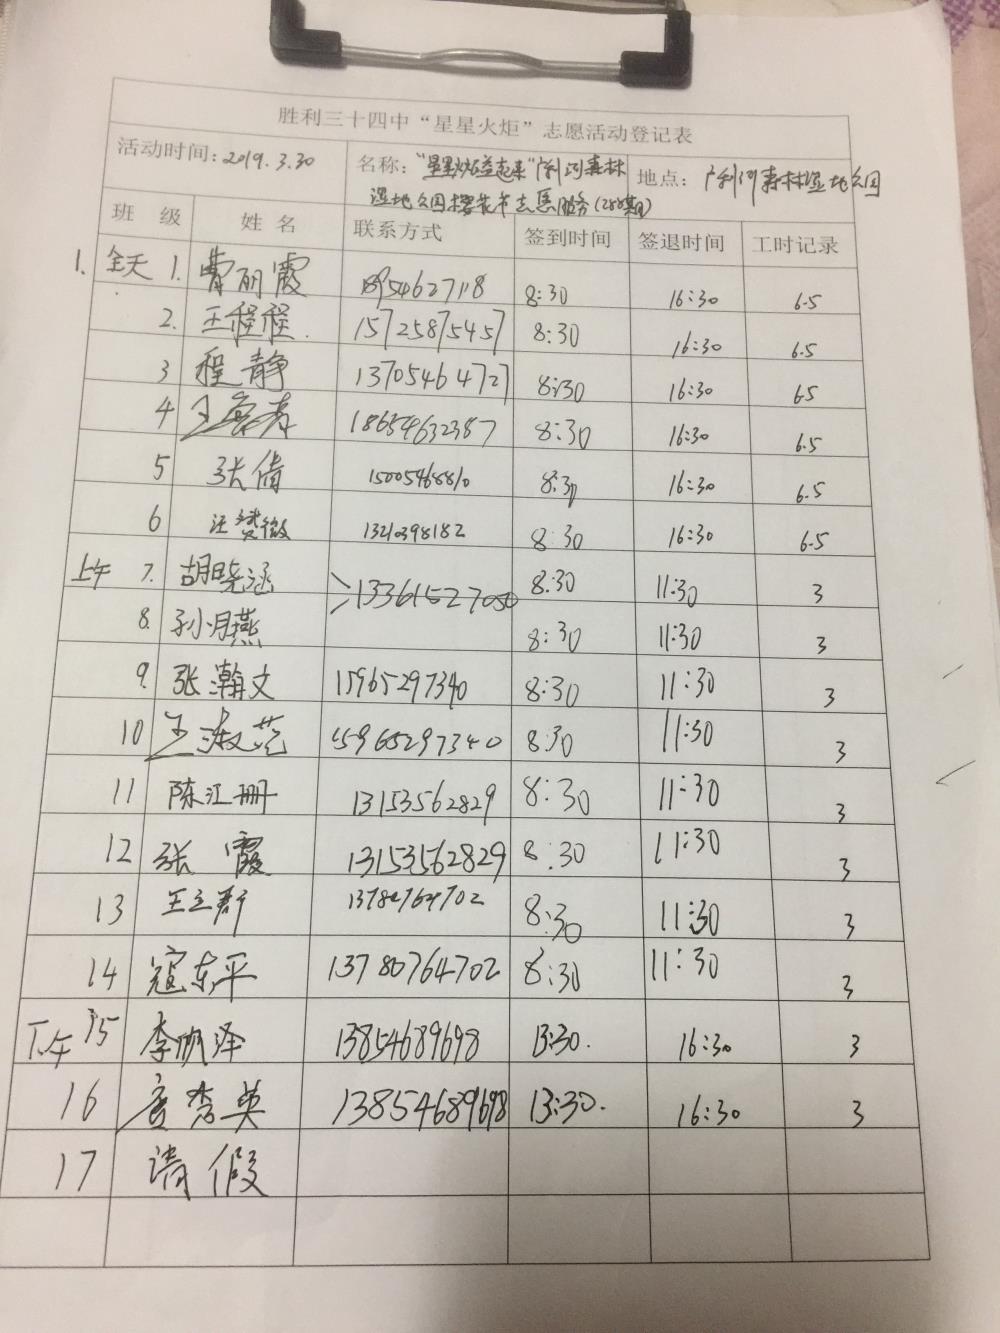 胜利三十四中“星星火炬”志愿活动登记表
活动时间:2019.3.30 名称:“星星火炬益起来”广利河森林 地点:广利河森林湿地公园
湿地公园樱花节志愿服务(288期)
班 级 姓 名 联系方式 签到时间 签退时间 工时记录
1、全天 1. 曹丽霞 8:30 16:30 6.5
2. 王程程 15725875457 8:30 16:30 6.5
3 程静 13705464727 8:30 16:30 6.5
4 18654632387 8:30 16:30 6.5
5 张倩 15005468810 8:30 16:30 6.5
6 汪赞微 1321398182 8:30 16:30 6.5
上午 7. 胡晓涵 13361527050 8:30 11:30 3
8. 孙月燕 8:30 11:30 3
9. 张瀚文 15965297340 8:30 11:30 3
10 王淑范 15965297340 8:30 11:30 3
11 陈江册 13153562829 8:30 11:30 3
12 张霞 13153562829 8:30 11:30 3
13 王立群 13780764702 8:30 11:30 3
14 寇东平 13780764702 8:30 11:30 3
下午 15 李明泽 13854689698 13:30. 16:30 3
16 唐秀英 13854689698 13:30. 16:30 3
17 请假